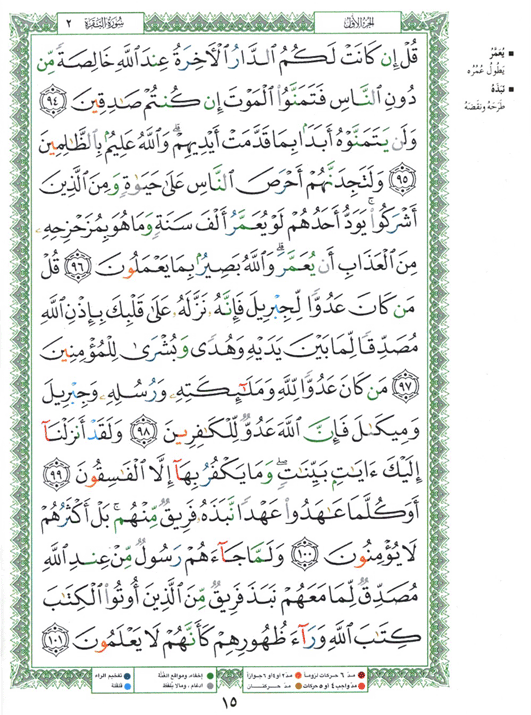 الجزء الأول
سورة البقرة ٢
قُلْ إِن كَانَتْ لَكُمُ ٱلدَّارُ ٱلْأَخِرَةُ عِندَ ٱللَّهِ خَالِصَةً مِّن
دُونِ ٱلنَّاسِ فَتَمَنَّوُا۟ ٱلْمَوْتَ إِن كُنتُمْ صَٰدِقِينَ ٩٤
وَلَن يَتَمَنَّوْهُ أَبَدًۢا بِمَا قَدَّمَتْ أَيْدِيهِمْ ۗ وَٱللَّهُ عَلِيمٌۢ بِٱلظَّٰلِمِينَ
٩٥ وَلَتَجِدَنَّهُمْ أَحْرَصَ ٱلنَّاسِ عَلَىٰ حَيَوٰةٍ وَمِنَ ٱلَّذِينَ
أَشْرَكُوا۟ ۚ يَوَدُّ أَحَدُهُمْ لَوْ يُعَمَّرُ أَلْفَ سَنَةٍ وَمَا هُوَ بِمُزَحْزِحِهِۦ
مِنَ ٱلْعَذَابِ أَن يُعَمَّرَ ۗ وَٱللَّهُ بَصِيرٌۢ بِمَا يَعْمَلُونَ ٩٦ قُلْ
مَن كَانَ عَدُوًّا لِّجِبْرِيلَ فَإِنَّهُۥ نَزَّلَهُۥ عَلَىٰ قَلْبِكَ بِإِذْنِ ٱللَّهِ
مُصَدِّقًا لِّمَا بَيْنَ يَدَيْهِ وَهُدًى وَبُشْرَىٰ لِلْمُؤْمِنِينَ
٩٧ مَن كَانَ عَدُوًّا لِّلَّهِ وَمَلَٰٓئِكَتِهِۦ وَرُسُلِهِۦ وَجِبْرِيلَ
وَمِيكَىٰلَ فَإِنَّ ٱللَّهَ عَدُوٌّ لِّلْكَٰفِرِينَ ٩٨ وَلَقَدْ أَنزَلْنَآ
إِلَيْكَ ءَايَٰتٍۭ بَيِّنَٰتٍ ۖ وَمَا يَكْفُرُ بِهَآ إِلَّا ٱلْفَٰسِقُونَ ٩٩
أَوَكُلَّمَا عَٰهَدُوا۟ عَهْدًا نَّبَذَهُۥ فَرِيقٌ مِّنْهُم ۚ بَلْ أَكْثَرُهُمْ
لَا يُؤْمِنُونَ ١٠٠ وَلَمَّا جَآءَهُمْ رَسُولٌ مِّنْ عِندِ ٱللَّهِ
مُصَدِّقٌ لِّمَا مَعَهُمْ نَبَذَ فَرِيقٌ مِّنَ ٱلَّذِينَ أُوتُوا۟ ٱلْكِتَٰبَ
كِتَٰبَ ٱللَّهِ وَرَآءَ ظُهُورِهِمْ كَأَنَّهُمْ لَا يَعْلَمُونَ ١٠١
يُعَمَّرُ
يَطُولُ عُمُرُه
نَبَذَهُ
طَرَحَهُ ونَقَضَهُ
مد ٦ حركات لزوماً
مد ٢ او ٤ او ٦ جوازاً
إخفاء، ومواقع الغُنَّة
تفخيم الراء
مد واجب ٤ او ٥ حركات
مد حركتان
ادغام، وما لا يُلفَظ
قلقلة
١٥